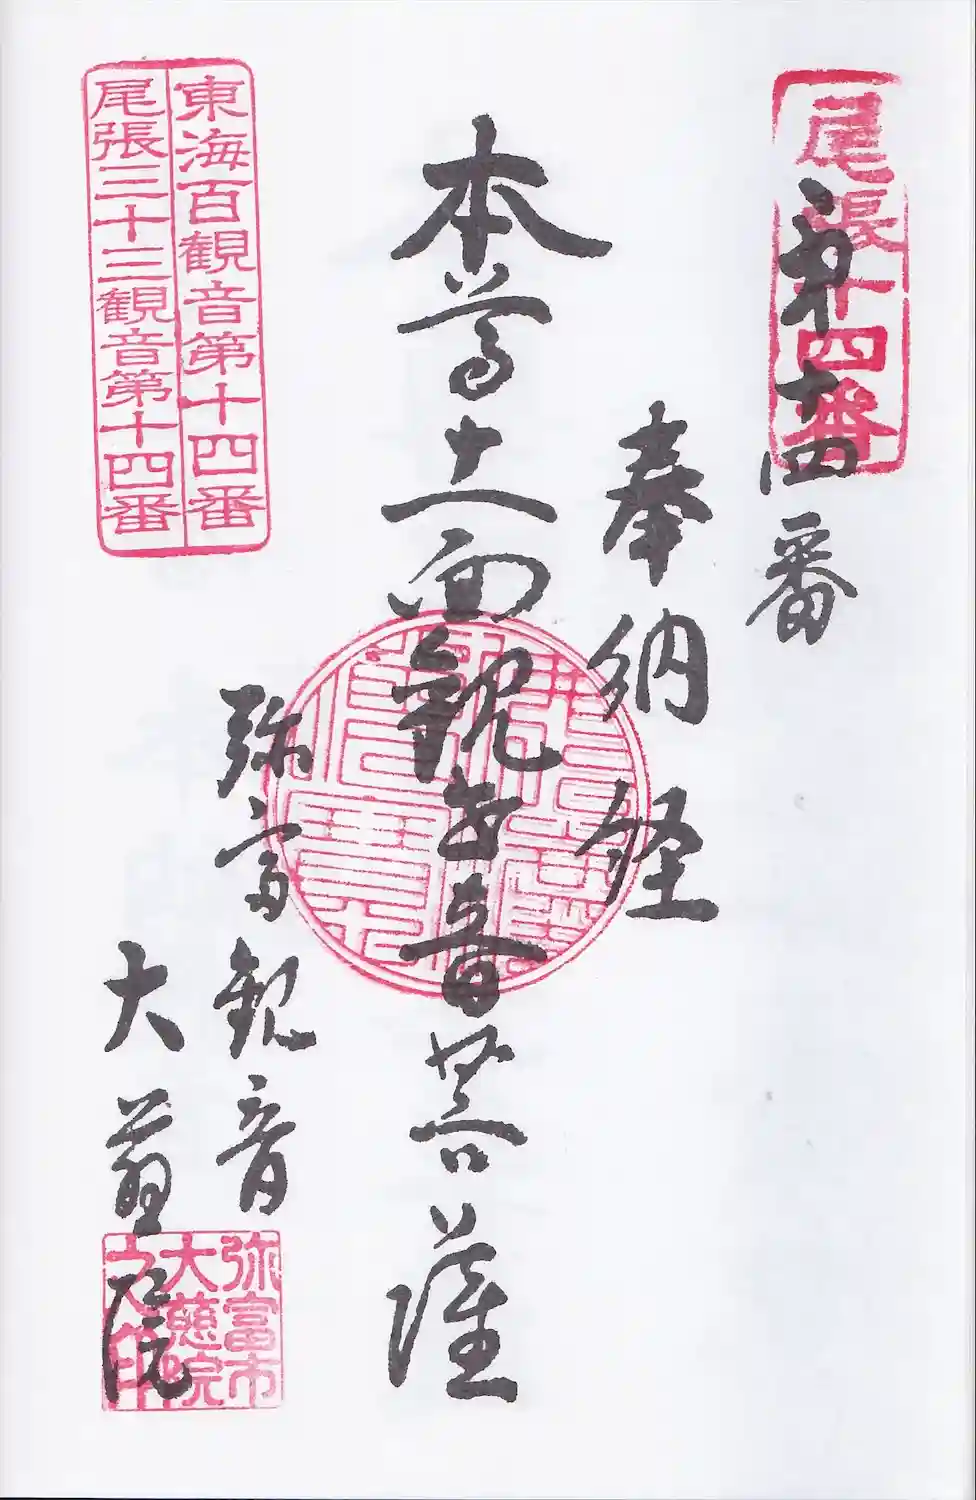 尾張十四番
第十四番
奉納経
本尊十一面観世音菩薩
弥富観音
大慈院
東海百観音第十四番
尾張三十三観音第十四番
弥富市
大慈院
之印